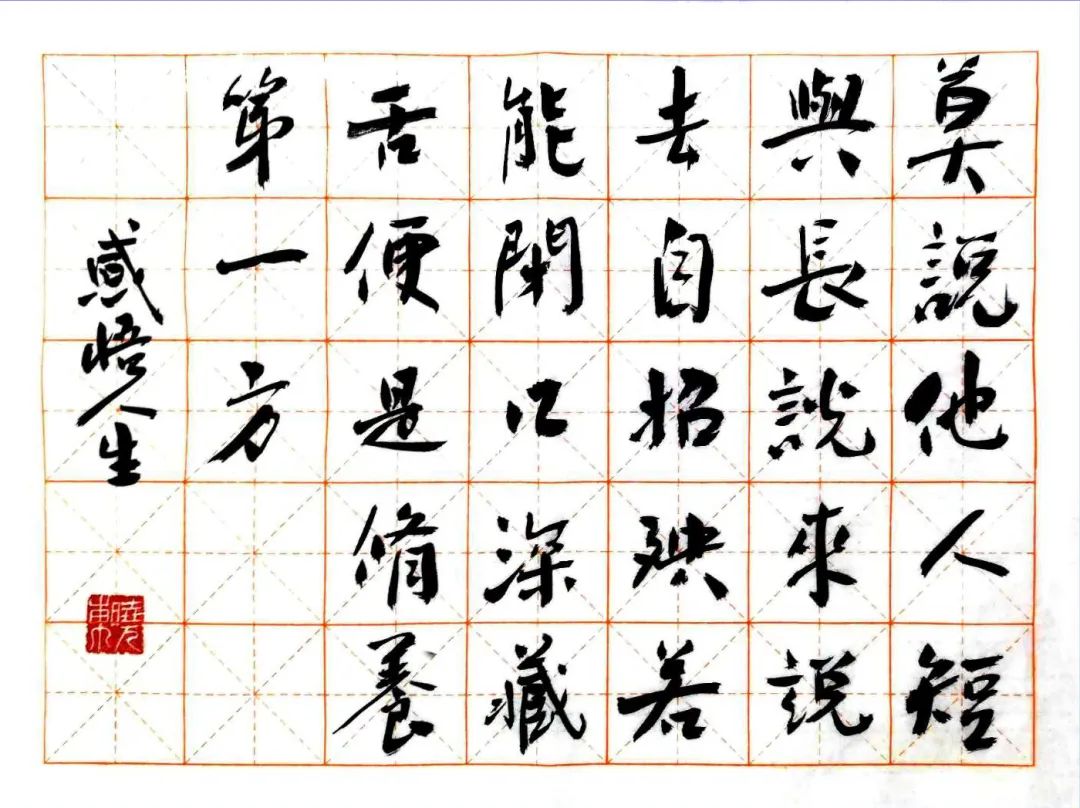 莫說他人短
與長說來說
去自招殃若
能閉口深藏
舌便是脩養
第一方
感悟人生
曉東